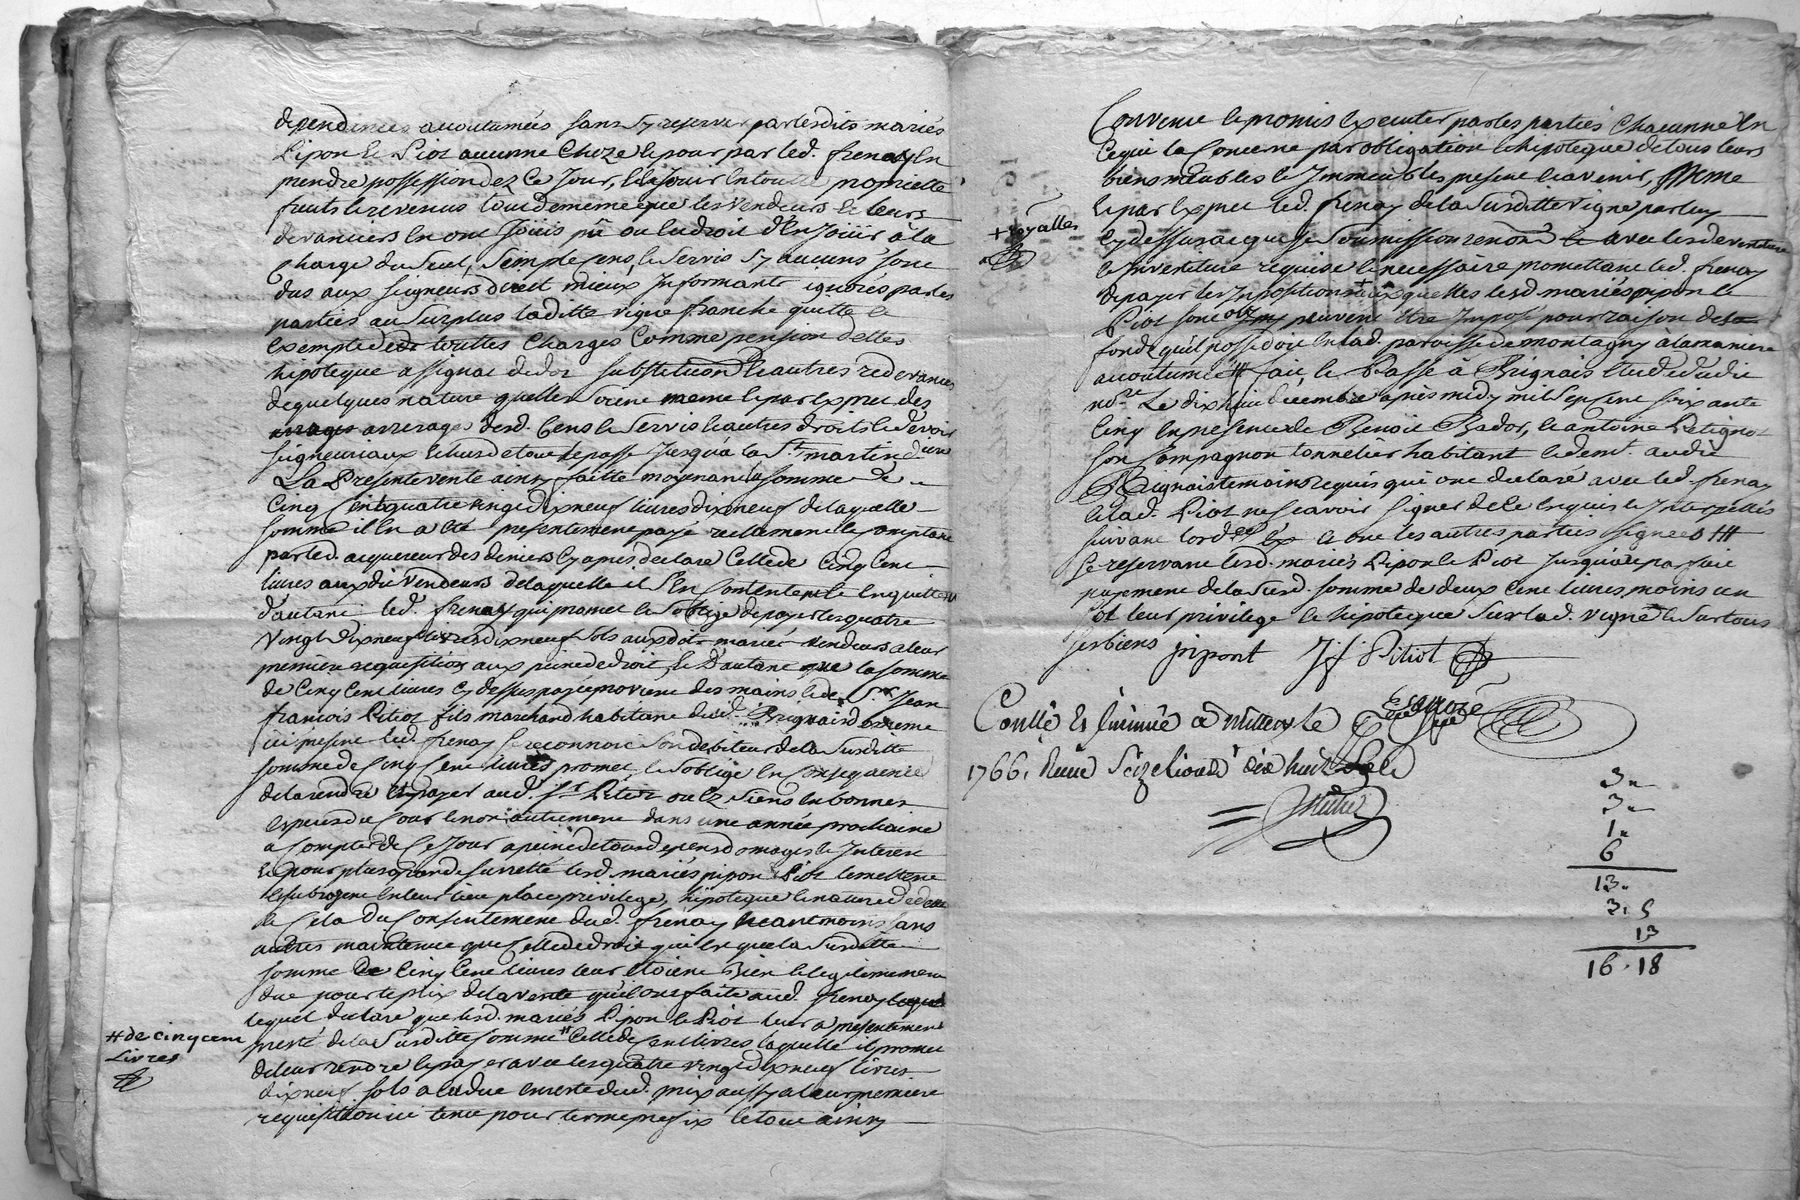 dependances accoutumées sans sy reserver par lesdits mariés
Pipon & Piot aucunne choze & pour par led. frenay en
prendre possession dez ce jour, & jouir en toutte proprietté
fruits & revenus tout de meme que les vendeurs & leurs
devanciers en ont jouis pû ou eu droit d'en jouir à la
charge du seul, simple cens, & servis sy aucuns sont
dus aux seigneurs direct mieux informants ignorés par les
parties au surplus laditte vigne franche quitte &
exempte de touttes charges comme pension dettes
hipoteque assignat de dot substitution & autres redevances
de quelques nature quelles soient meme & par exprez des
arrerages desd. cens & servis & autres droits & devoirs
seigneuriaux echus de tout le passé jusqu'à la St. martin d'
La Presente vente ainsy faitte moyenant la somme de
Cinq Cent quatre vingt dixneuf livres dixneuf de laquelle
somme il en a été presentement payé reellement & comptant
par led. acquereur des deniers cy apres declaré celle de cinq cent
livres auxdit vendeurs de laquelle il s'en contentent & en quittent
d'autant led. frenay qui promet & s'oblige de payer les quatre
vingt dixneuf livres dixneuf sols auxdits mariés vendeurs a leur
premiere requisition aux peine de droit, & d'autant que la somme
de cinq cent livres cy dessus payé provient des mains de Sr. Jean
francois Pitiot fils marchand habitant dud. Brignais
ici present led. frenay se reconnoit son debiteur de la susditte
somme de cinq cent livres promet, & s'oblige en consequence
de la rendre & payer aud. Sr. Pitiot ou ez siens en bonnes
especes du cour & non autrement dans une année prochaine
a compter de ce jour a peine de tous depens domages & interest
& pour plus grande surretté lesd. mariés pipon & Piot le mettent
& subrogent en leur lieu place privilege, hipoteque & nature de dette
& cela du consentement dud. frenay neantmoins sans
autres maintenue que celle de droit qui est que la susditte
somme de cinq cent livres leur etoient bien & legitimement
due pour le prix de la vente qu'il ont faite aud. frenay
lequel declare que lesd. mariés Pipon & Piot leur a presentement
presté de la susditte somme # celle de cent livres laquelle il promet
de leur rendre & payer avec les quatre vingt dix neuf livres
dixneuf sols a eu due en reste dud. prix aussy a leur premiere
requisition ici tenue pour terme prefix & tout ainsy
# de cinq cent
Livres
Convenu & promis executer par les parties chacunne en
ce qui la concerne par obligation & hipoteque de tous leurs
biens meubles & immeubles present & avenir, meme
& par exprez led. frenay de la susditte vigne par luy
cy dessus acquise soumission renon. & avec les devestiture
& investiture requise & necessaire promettant led. frenay
de payer les impositions + auxquelles lesd. mariés pipon &
Piot sont ou peuvent être imposé pour raison de la
fonds qu'il possedoit en lad. paroisse de montagny à la maniere
accoutumée fait, & Passé à Brignais etude dudit
nore. Le dix huit decembre après midy mil sept cent soixante
cinq en presence de Benoit Bador, & antoine Petignot
son compagnon tonnelier habitant & dem. audit
Brignais temoins requis qui ont declaré avec led. frenay
& lad. Piot ne scavoir signer de ce enquis & interpellés
suivant lord. & ont les autres parties signées #
se reservant lesd. mariés Pipon & Piot jusqu'à parfait
payement de la susd. somme de deux cent livres, moins un
sol leur privilege & hipoteque sur lad. vigne & sur tous
ses biens pipont Jf Pitiot
+ royalles
Conllé & insinué a millery le
1766. Receu seize livres dix huit sols
3"
3"
1"
6
13"
3, 5
13
16. 18